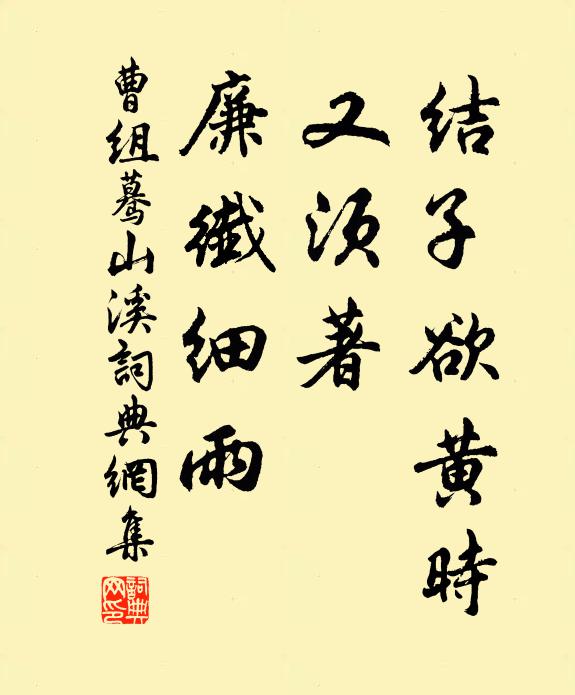 结子欲黄時
又須著
廉纖细雨
曹组蓦山溪詞典網集
詞典网印